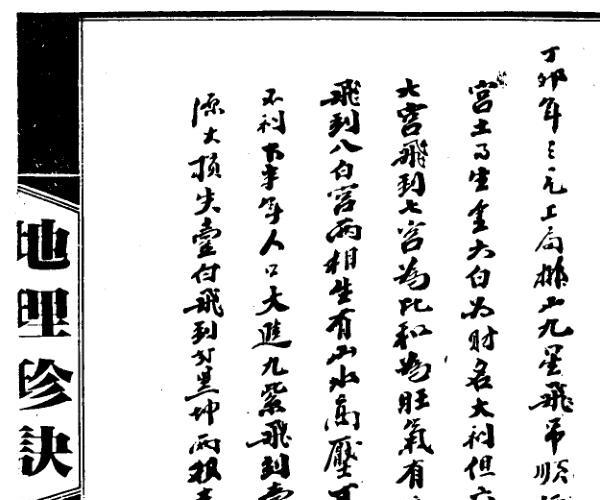 丁卯年三元上局排山九星飛吊順
宮土生金六白为财名大利但六
六宮飛到七宮為比和為旺氣有
飛到八白宮兩相生有山水高壓可
不利下半年人口大進九紫飛到壹
源大損失壹付飛到黑坤兩
地理珍訣